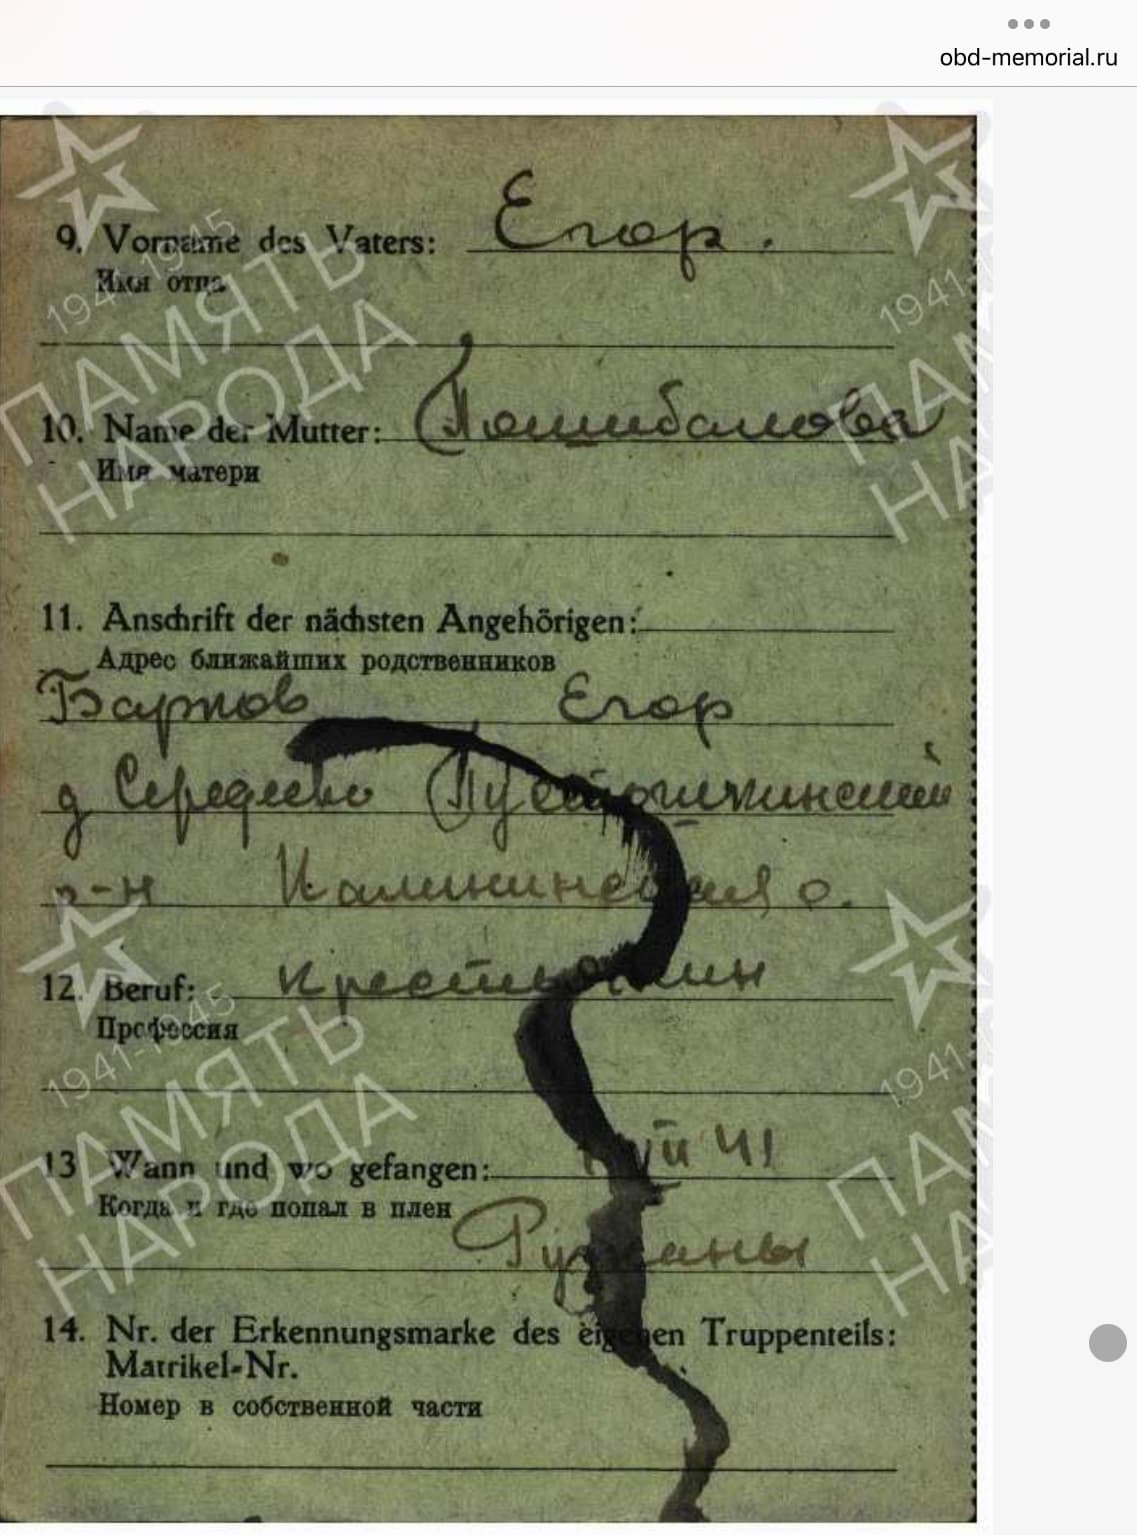 obd-memorial.ru
9. Vorname des Vaters: Егор.
Имя отца
10. Name der Mutter: Пошибалова
Имя матери
11. Anschrift der nächsten Angehörigen:
Адрес ближайших родственников
Барков Егор
д Середеево Пустошкинский
р-н Калининская о.
12. Beruf: крестьянин
Профессия
13 Wann und wo gefangen: VII 41
Когда и где попал в плен
Ружаны
14. Nr. der Erkennungsmarke des eigenen Truppenteils:
Matrikel-Nr.
Номер в собственной части
1941-1945
ПАМЯТЬ
НАРОДА
1941-1945
ПАМЯТЬ
НАРОДА